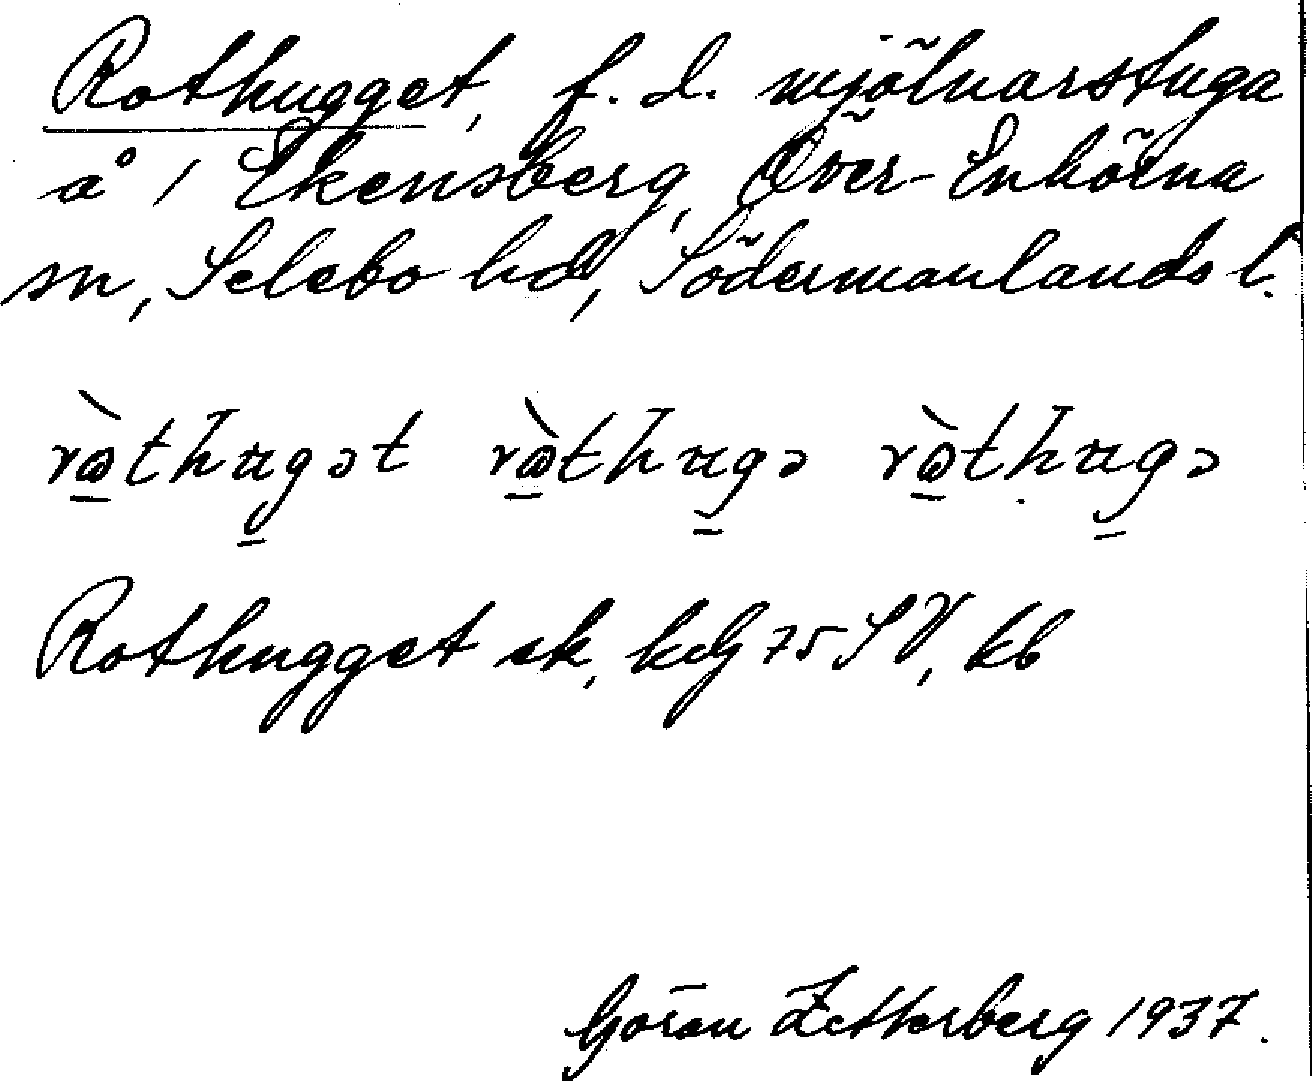 Rothugget, f. d. mjölnarstuga
å / Ekensberg, Över-Enhörna
sn, Selebo hd, Södermanlands l.
rὼthugət rὼthugə rὼthugə
Rothugget ek, 75 SV, kb
Göran Zetterberg 1937.